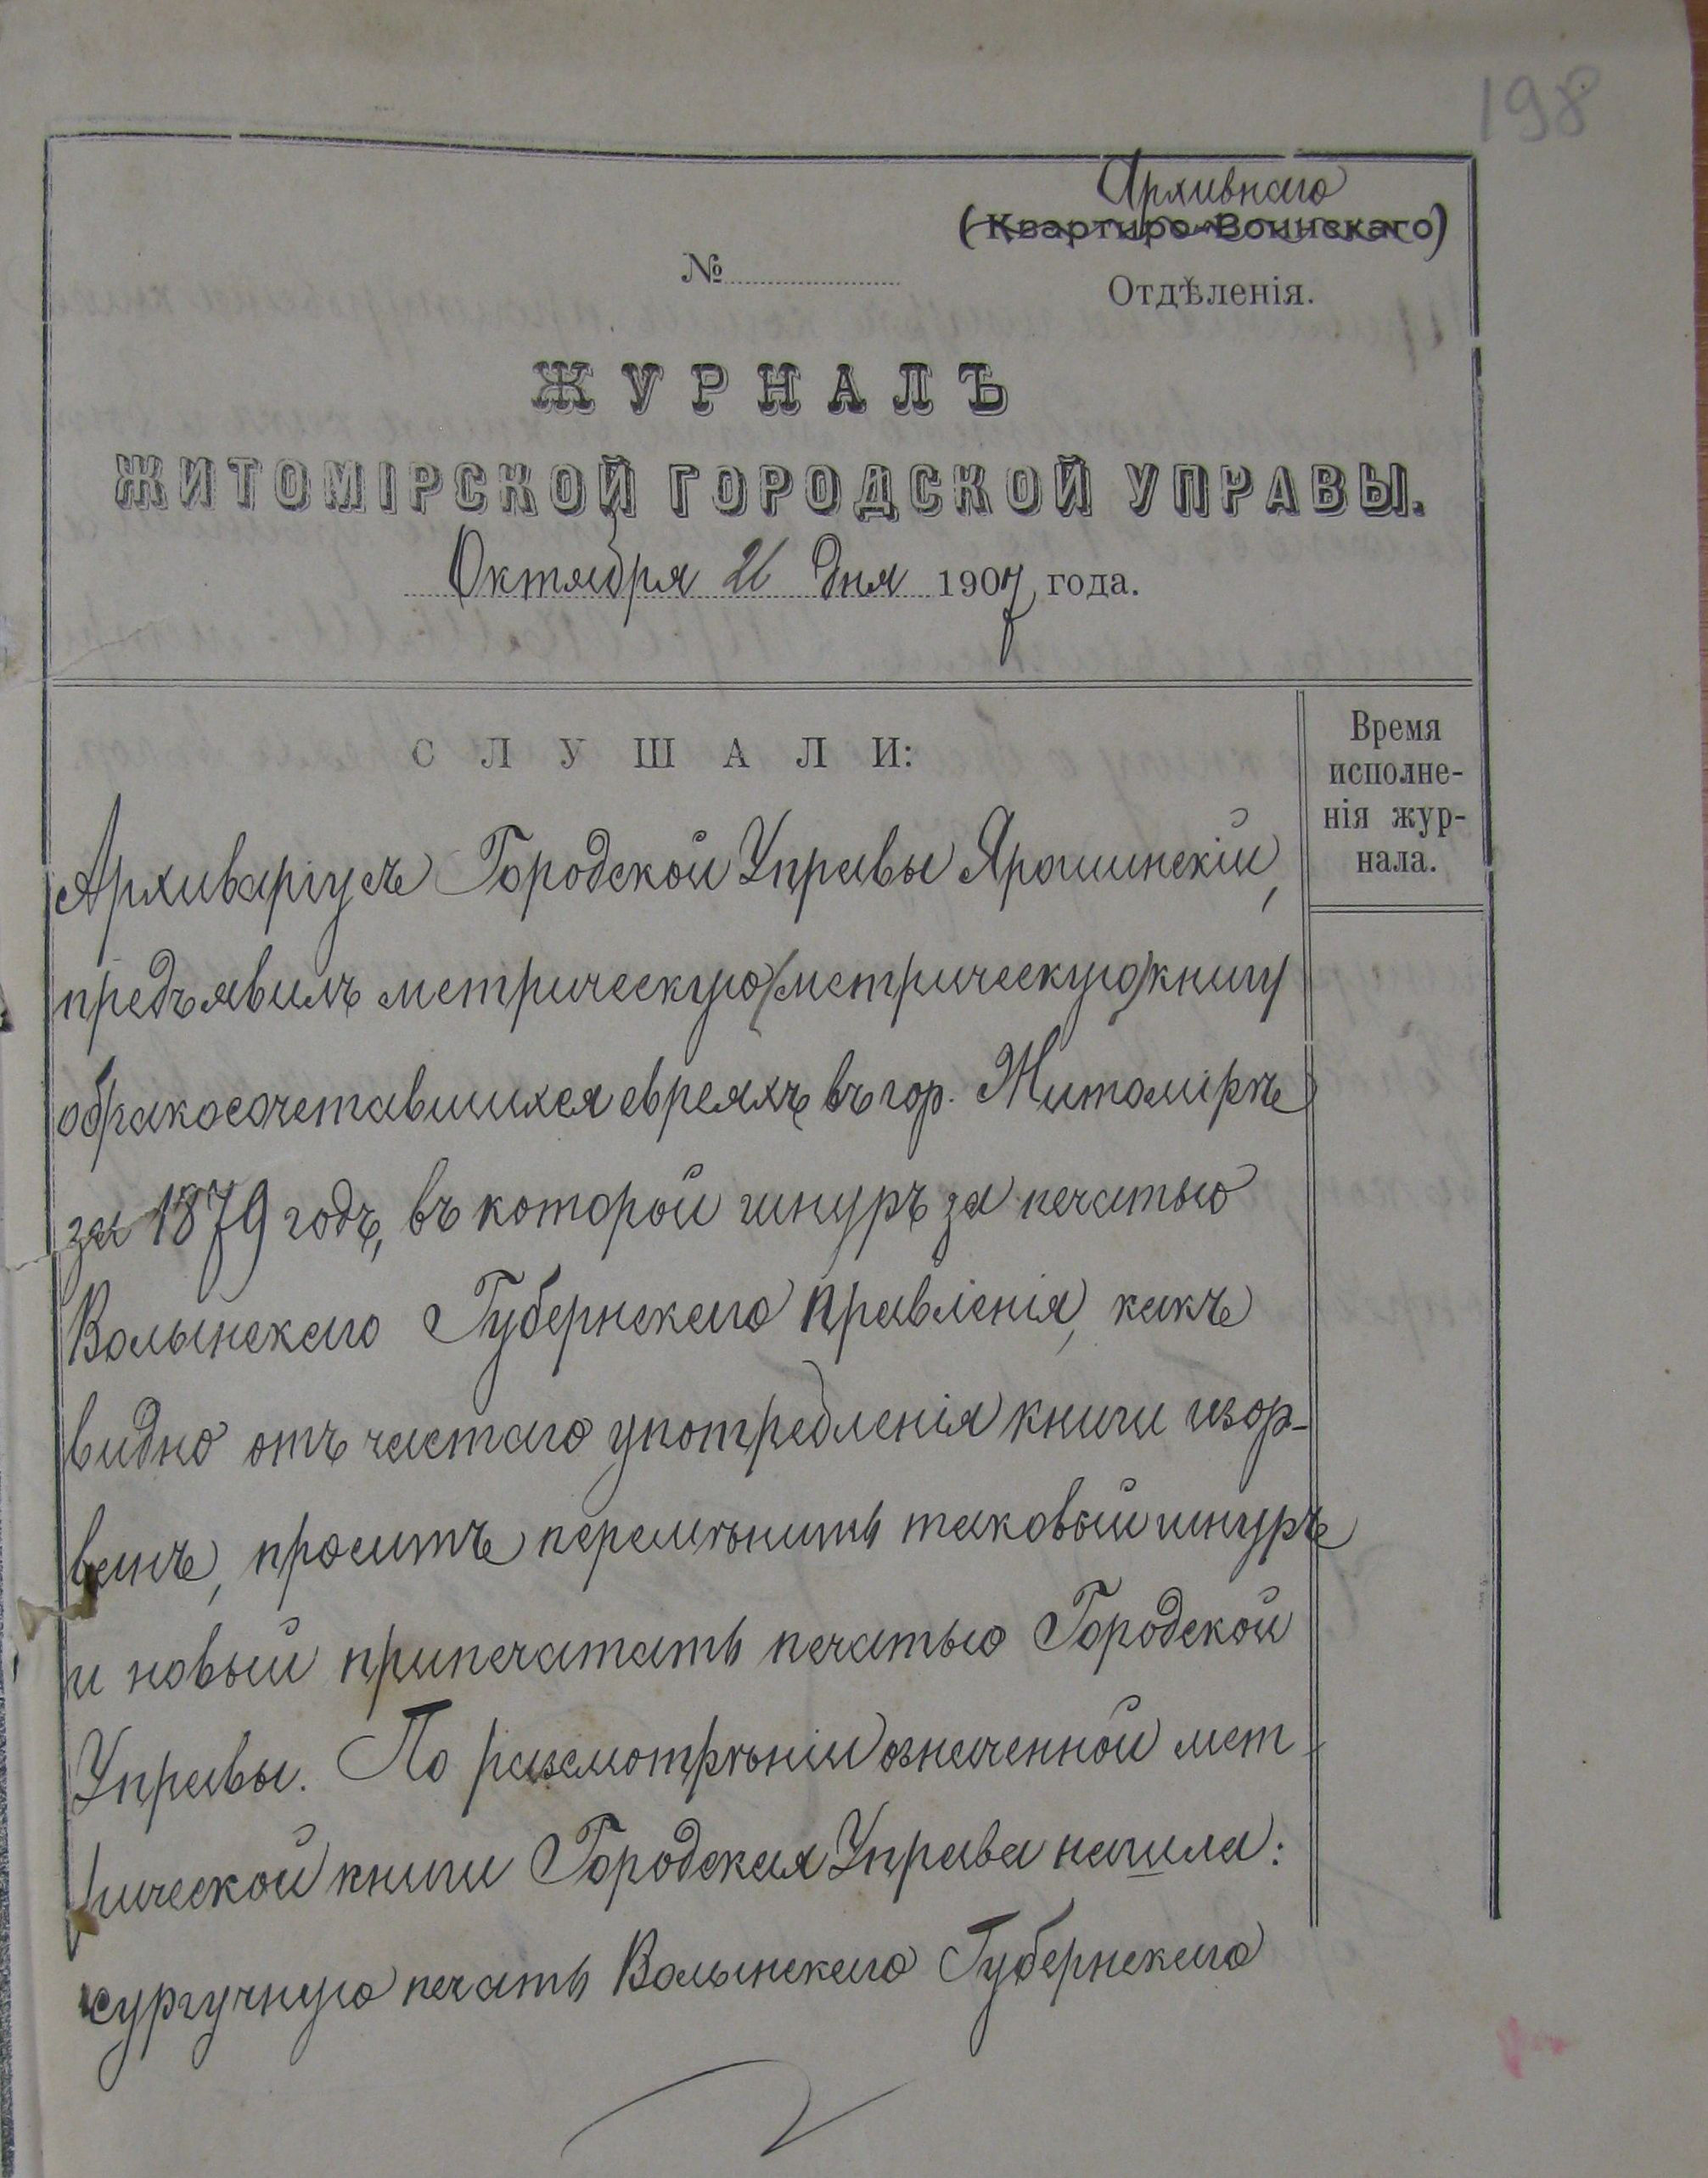 198
Архивнаго
(Квартиро-Воинскаго)
№
Отдѣленія.
ЖУРНАЛЪ
ЖИТОМІРСКОЙ ГОРОДСКОЙ УПРАВЫ.
Октября 21 дня 1907 года.
СЛУШАЛИ:
Время
исполне-
нія жур-
нала.
Архиваріусъ Городской Управы Ярошинскій,
предъявилъ метрическую (метрическую) книгу
о бракосочетавшихся евреяхъ въ гор. Житомірѣ
за 1879 годъ, въ которой шнуръ за печатью
Волынскаго Губернскаго Правленія, какъ
видно отъ частаго употребленія книги изор-
ванъ, проситъ перемѣнить таковый шнуръ
и новый припечатать печатью Городской
Управы. По разсмотрѣніи означенной мет
рической книги Городская Управа нашла:
сургучную печать Волынскаго Губернскаго